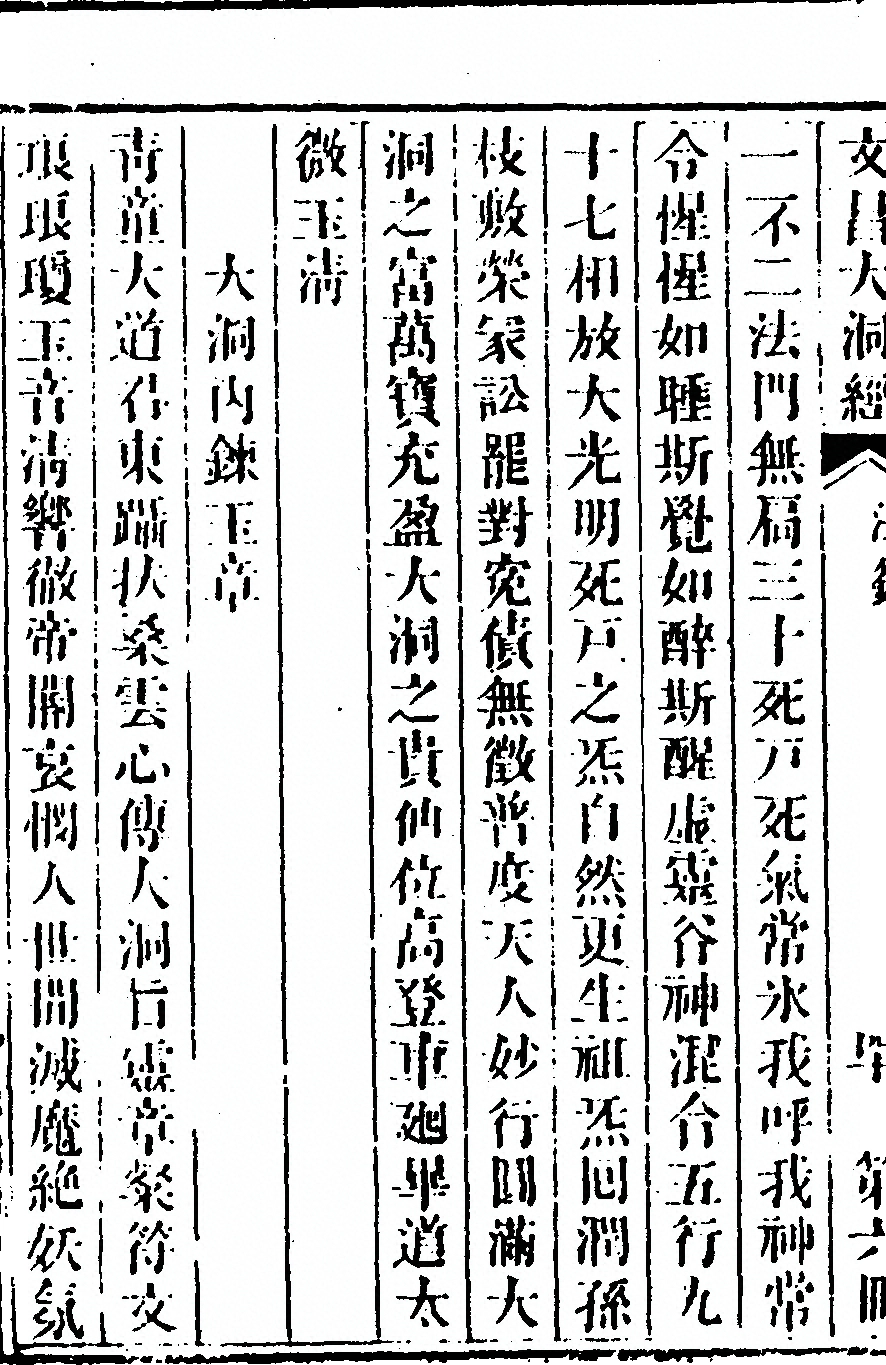 文昌大洞經
第六冊
一不二法門無扃三十死戸死氣常氷我呼我神常
令惺惺如睡斯覺如醉斯醒虛靈谷神混合五行九
十七相放大光明死戸之炁自然更生祖炁回潤孫
枝敷榮家訟罷對寃債無徵普度天人妙行圓滿大
洞之富萬寶充盈大洞之貴仙位高登車廻畢道太
微玉清
大洞内鍊玉章
青童大道君東躡扶桑雲心傳大洞旨靈章粲符文
琅琅瓊玉音清響徹帝閽哀憫人世間滅魔絶妖氛